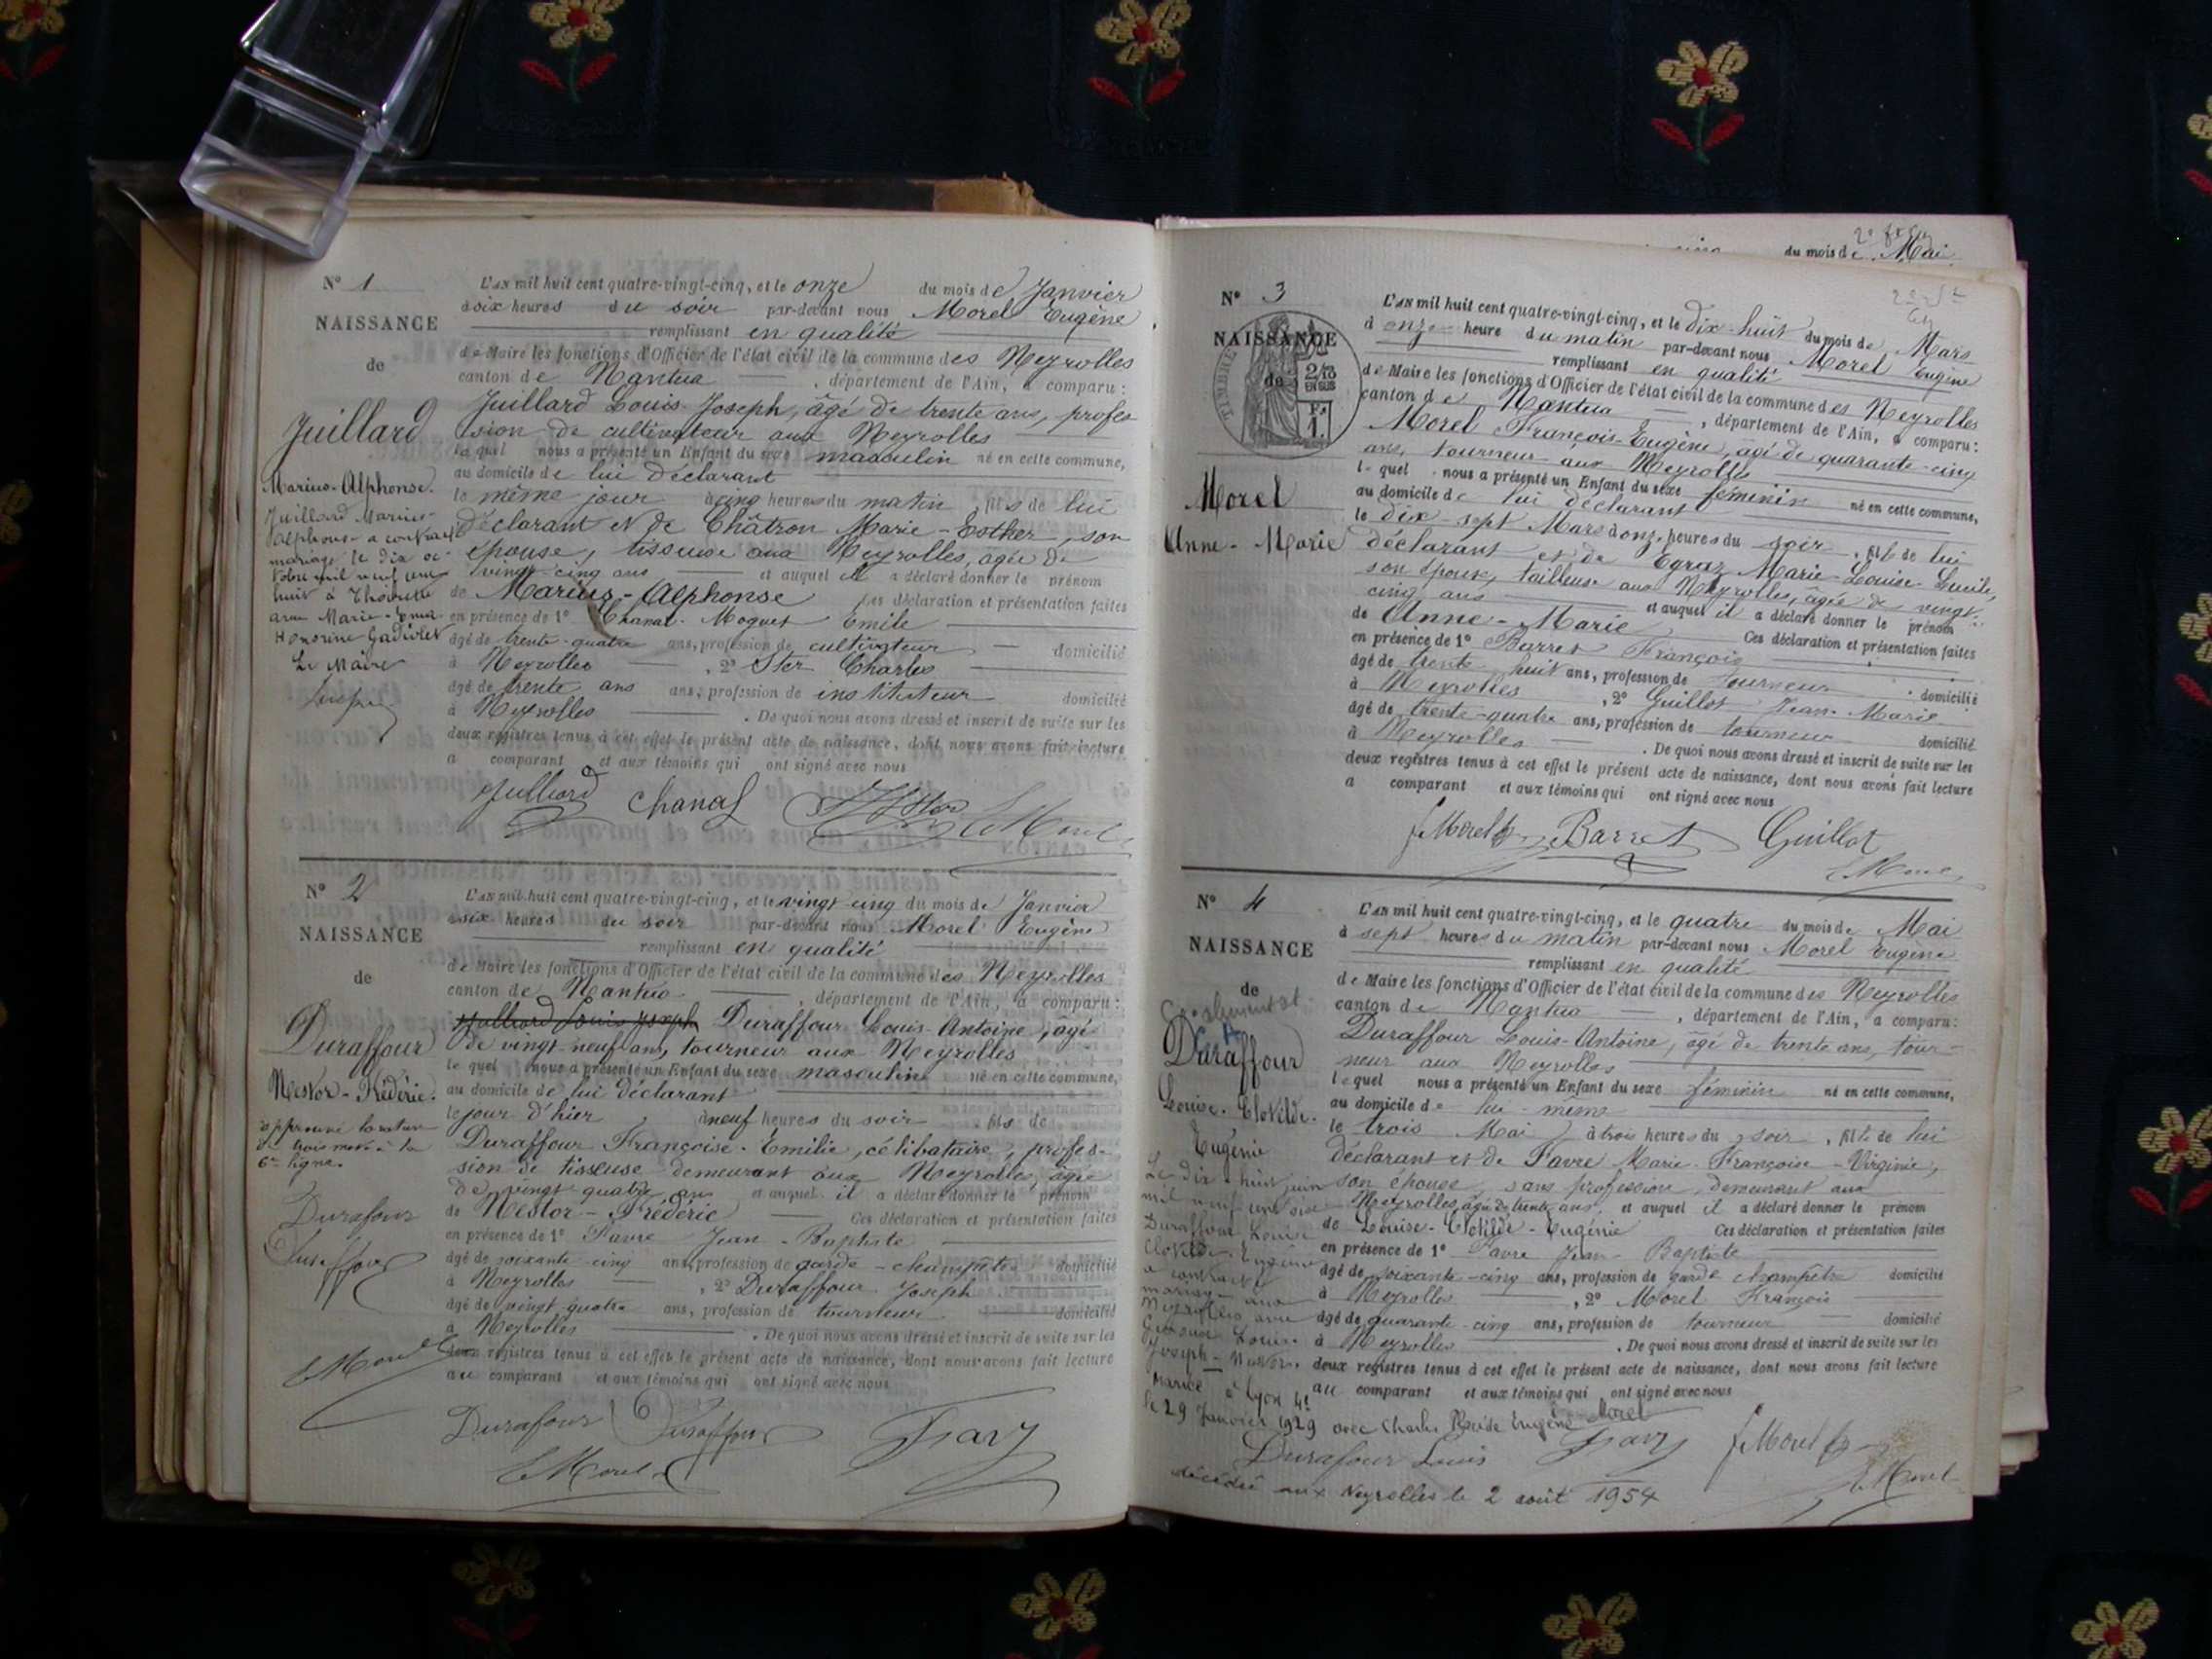 N° 1
NAISSANCE
de
Juillard
Marius-Alphonse.
Juillard Marius-
Alphonse a contracté
mariage le dix oc-
tobre mil neuf cent
huit à Thoirette
avec Marie-
Honorine
Le Maire
L'AN mil huit cent quatre-vingt-cinq, et le onze du mois de Janvier
à six heures du soir par-devant nous Morel Eugène
remplissant en qualité
de Maire les fonctions d'Officier de l'état civil de la commune des Neyrolles
canton de Nantua, département de l'Ain, a comparu :
Juillard Louis-Joseph, âgé de trente ans, profes
sion de cultivateur aux Neyrolles
le quel nous a présenté un Enfant du sexe masculin né en cette commune,
au domicile de lui déclarant
le même jour à cinq heures du matin, fils de lui
déclarant et de Châtron Marie-Esther, son
épouse, tisseuse aux Neyrolles, âgée de
vingt-cinq ans et auquel il a déclaré donner le prénom
de Marius-Alphonse Ces déclaration et présentation faites
en présence de 1° Chanal-Moquet Emile
âgé de trente-quatre ans, profession de cultivateur domicilié
à Neyrolles, 2° Ster Charles
âgé de trente ans ans, profession de instituteur domicilié
à Neyrolles. De quoi nous avons dressé et inscrit de suite sur les
deux registres tenus à cet effet le présent acte de naissance, dont nous avons fait lecture
a comparant et aux témoins qui ont signé avec nous
Juilliard Chanal Ster E Morel
N° 2
NAISSANCE
de
Duraffour
Nestor-Frédéric.
approuvé la rature
de trois mots à la
6e ligne.
Durafour
Duraffour
E Morel
L'AN mil huit cent quatre-vingt-cinq, et le vingt-cinq du mois de Janvier
à six heures du soir par-devant nous Morel Eugène
remplissant en qualité
de Maire les fonctions d'Officier de l'état civil de la commune des Neyrolles
canton de Nantua, département de l'Ain, a comparu :
Juilliard Louis Joseph Duraffour Louis-Antoine, âgé
de vingt-neuf ans, tourneur aux Neyrolles
le quel nous a présenté un Enfant du sexe masculin né en cette commune,
au domicile de lui déclarant
le jour d'hier, à neuf heures du soir, fils de
Duraffour Françoise-Emilie, célibataire, profes-
sion de tisseuse demeurant aux Neyrolles, âgée
de vingt quatre ans et auquel il a déclaré donner le prénom
de Nestor-Frédéric Ces déclaration et présentation faites
en présence de 1° Favre Jean-Baptiste
âgé de soixante-cinq ans, profession de garde-champêtre domicilié
à Neyrolles, 2° Duraffour Joseph
âgé de vingt-quatre ans, profession de tourneur domicilié
à Neyrolles. De quoi nous avons dressé et inscrit de suite sur les
deux registres tenus à cet effet le présent acte de naissance, dont nous avons fait lecture
au comparant et aux témoins qui ont signé avec nous
Durafour Duraffour Favre
E Morel
du mois de Mai
N° 3
NAISSANCE
de
TIMBRE
2/10
EN SUS
Fr
1.
Morel
Anne-Marie
L'AN mil huit cent quatre-vingt-cinq, et le dix-huit du mois de Mars
à onze heure du matin par-devant nous Morel Eugène
remplissant en qualité
de Maire les fonctions d'Officier de l'état civil de la commune des Neyrolles
canton de Nantua, département de l'Ain, a comparu :
Morel François-Eugène, âgé de quarante-cinq
ans, tourneur aux Neyrolles
le quel nous a présenté un Enfant du sexe féminin né en cette commune,
au domicile de lui déclarant
le dix-sept Mars à onze heures du soir, fille de lui
déclarant et de Egraz Marie-Louise-Lucile,
son épouse, tailleuse aux Neyrolles, âgée de vingt-
cinq ans et auquel il a déclaré donner le prénom
de Anne-Marie Ces déclaration et présentation faites
en présence de 1° Barret François
âgé de trente huit ans, profession de tourneur domicilié
à Neyrolles, 2° Guillot Jean-Marie
âgé de trente-quatre ans, profession de tourneur domicilié
à Neyrolles. De quoi nous avons dressé et inscrit de suite sur les
deux registres tenus à cet effet le présent acte de naissance, dont nous avons fait lecture
a comparant et aux témoins qui ont signé avec nous
f Morel Barret Guillot
E Morel
N° 4
NAISSANCE
de
Duraffour
Louise-Clotilde-
Eugénie
Le dix-huit juin
mil neuf cent
Duraffour Louise
Clotilde Eugénie
a contracté
mariage aux
Neyrolles avec
Louis
Joseph
Mariée à Lyon 4e
le 29 Janvier 1929 avec Charles Placide Eugène Morel
L'AN mil huit cent quatre-vingt-cinq, et le quatre du mois de Mai
à sept heures du matin par-devant nous Morel Eugène
remplissant en qualité
de Maire les fonctions d'Officier de l'état civil de la commune des Neyrolles
canton de Nantua, département de l'Ain, a comparu :
Duraffour Louis-Antoine, âgé de trente ans, tour-
neur aux Neyrolles
le quel nous a présenté un Enfant du sexe féminin né en cette commune,
au domicile de lui-même
le trois Mai à trois heures du soir, fille de lui
déclarant et de Favre Marie-Françoise-Virginie,
son épouse, sans profession, demeurant aux
Neyrolles, âgée de trente ans, et auquel il a déclaré donner le prénom
de Louise-Clotilde-Eugénie Ces déclaration et présentation faites
en présence de 1° Favre Jean-Baptiste
âgé de soixante-cinq ans, profession de garde champêtre domicilié
à Neyrolles, 2° Morel François
âgé de quarante-cinq ans, profession de tourneur domicilié
à Neyrolles. De quoi nous avons dressé et inscrit de suite sur les
deux registres tenus à cet effet le présent acte de naissance, dont nous avons fait lecture
au comparant et aux témoins qui ont signé avec nous
Durafour Louis Favre f Morel
E Morel
décédée aux Neyrolles le 2 août 1954